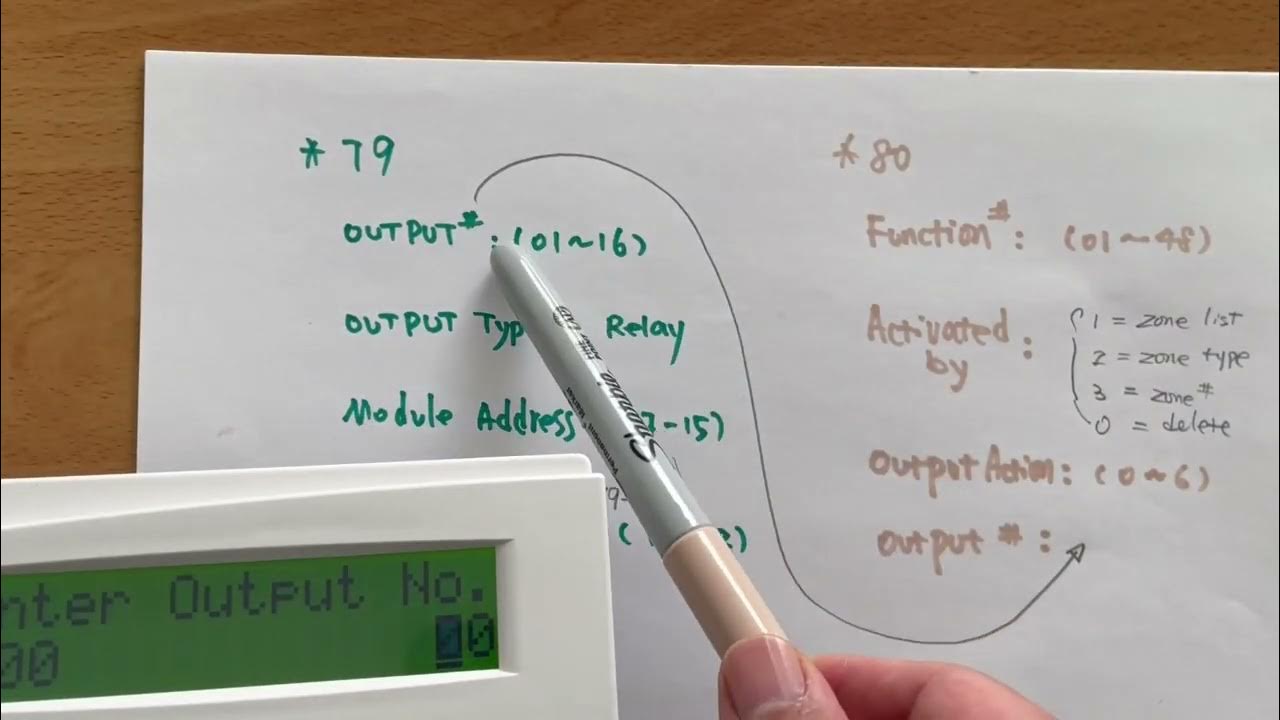 *79
OUTPUT#: (01~16)
OUTPUT Typ Relay
Module Address -15)
*80
Function#: (01~48)
Activated by :
1 = zone list
2 = zone type
3 = zone#
0 = delete
Output Action: (0~6)
Output #:
Sharpie
nter Output No.
00 00